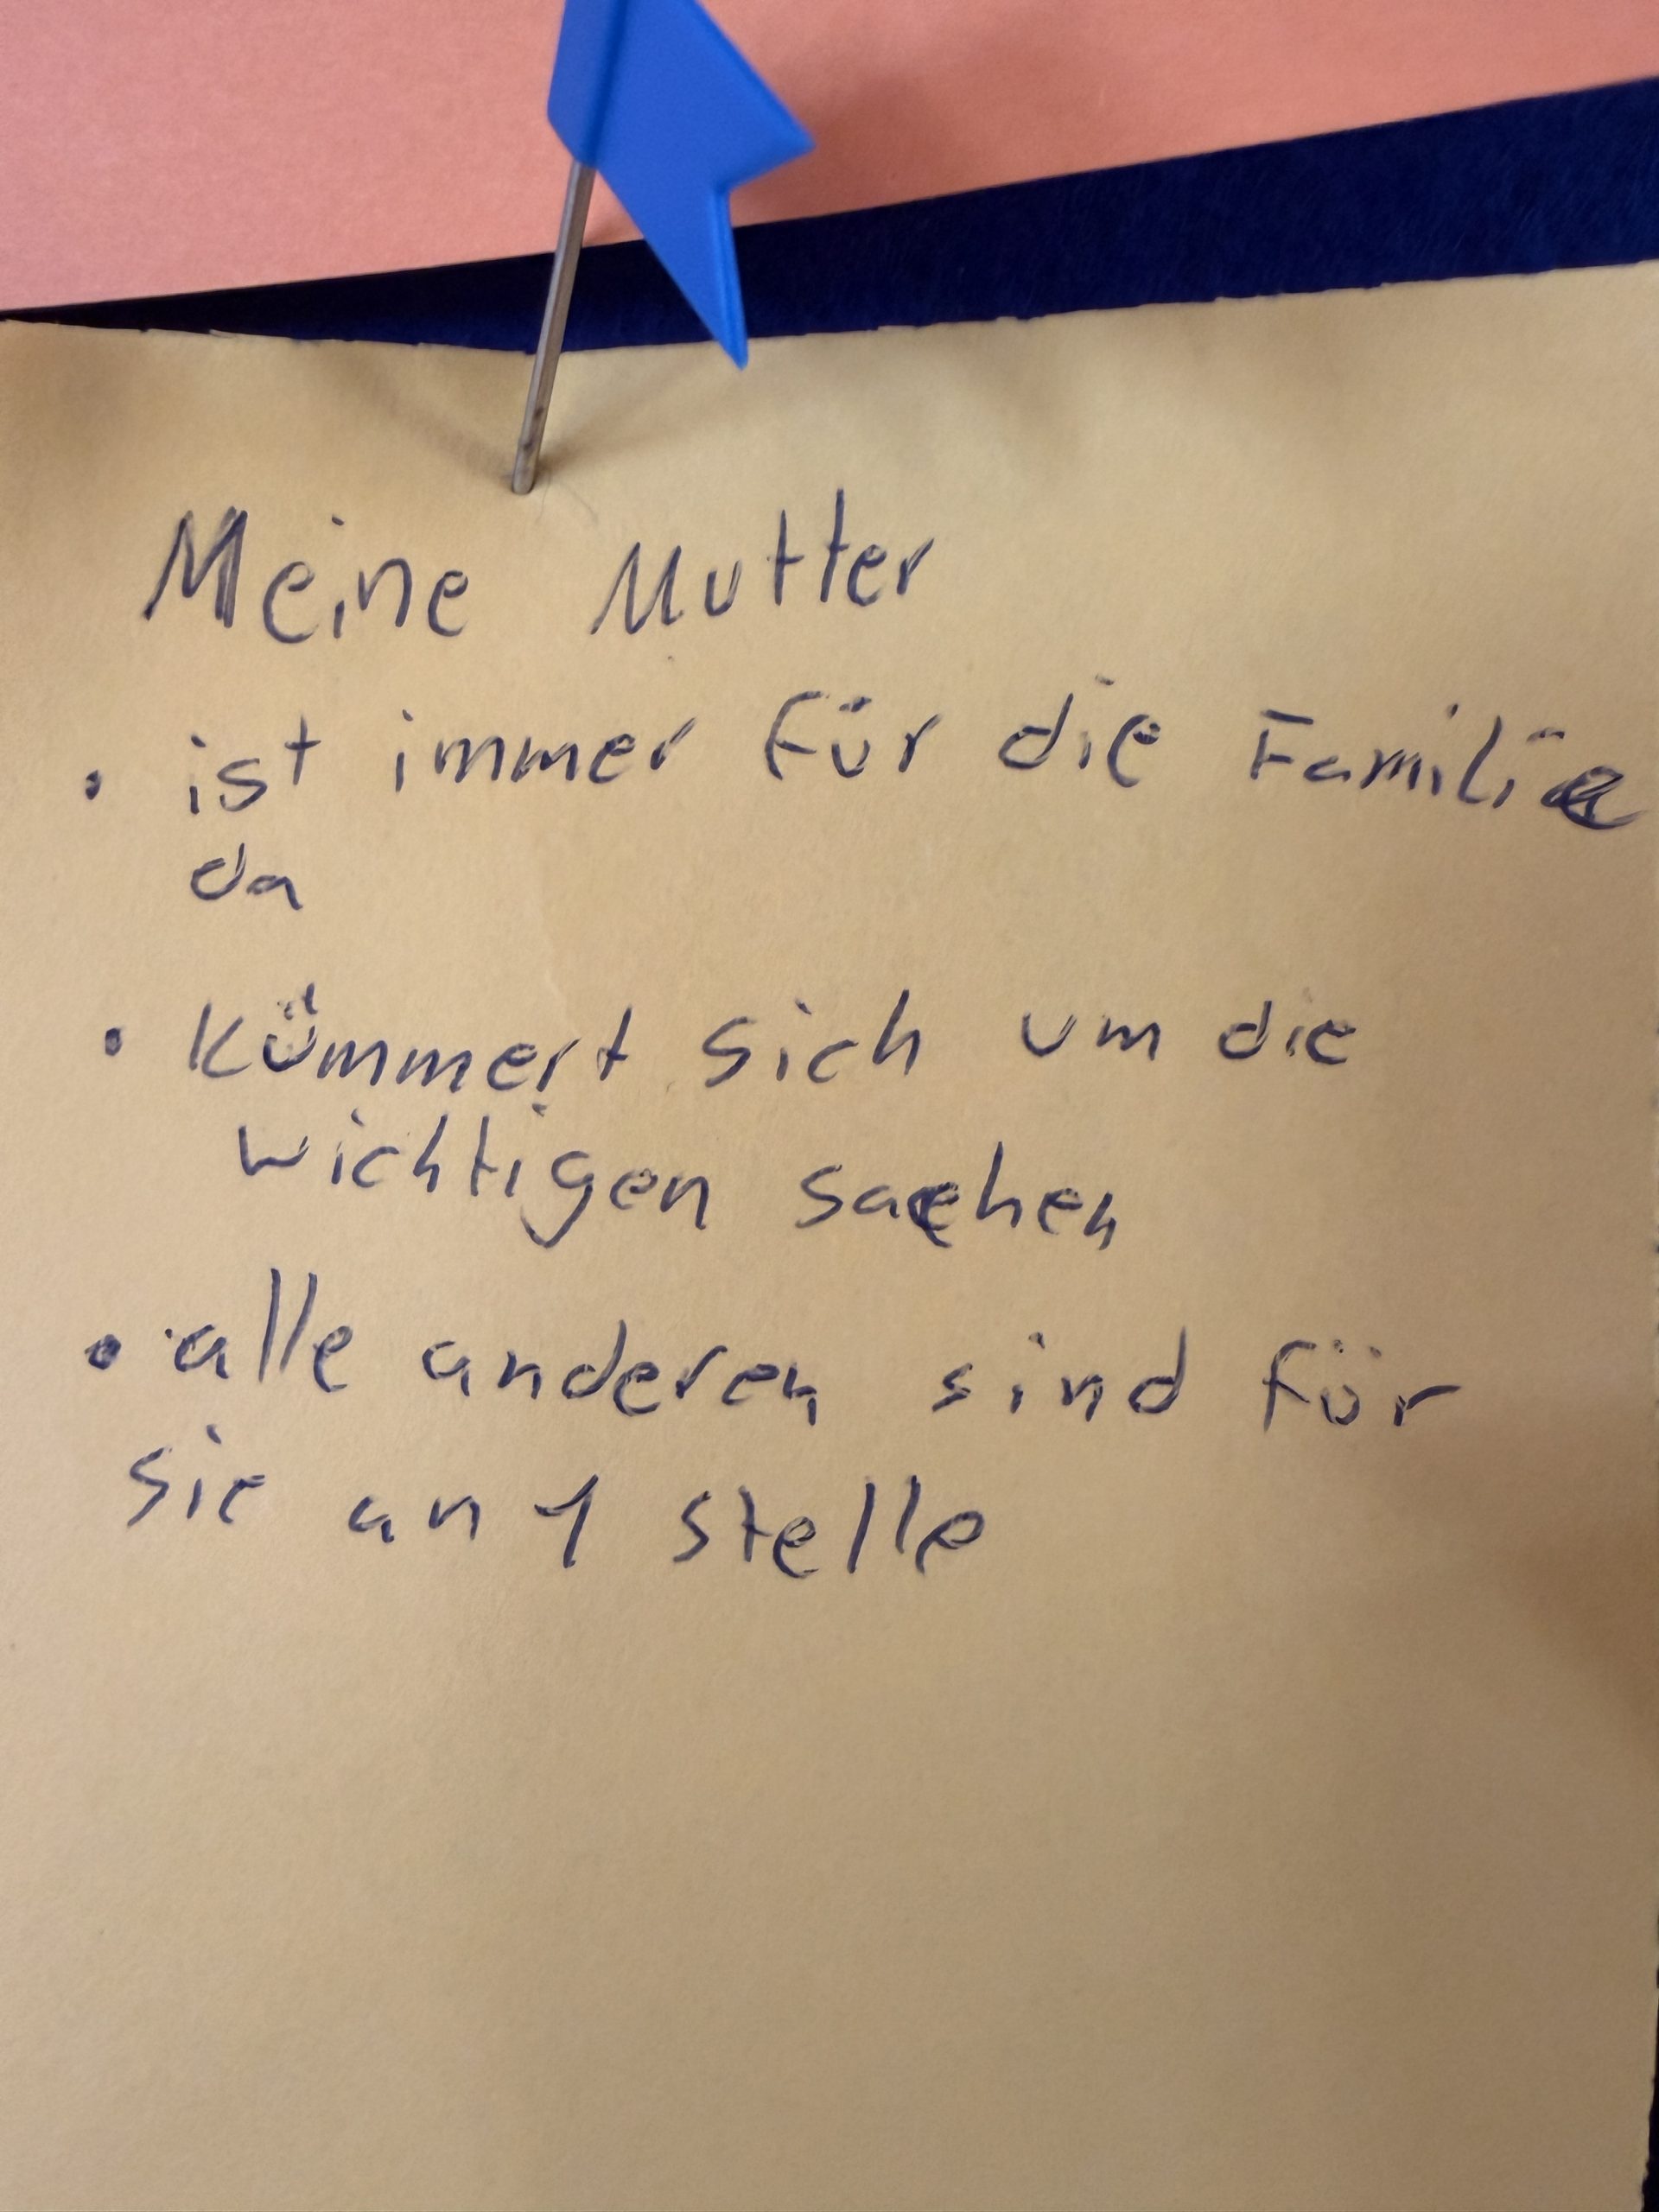 Meine Mutter
• ist immer für die Familie
da
• Kümmert sich um die
wichtigen sachen
• alle anderen sind für
sie an 1 stelle